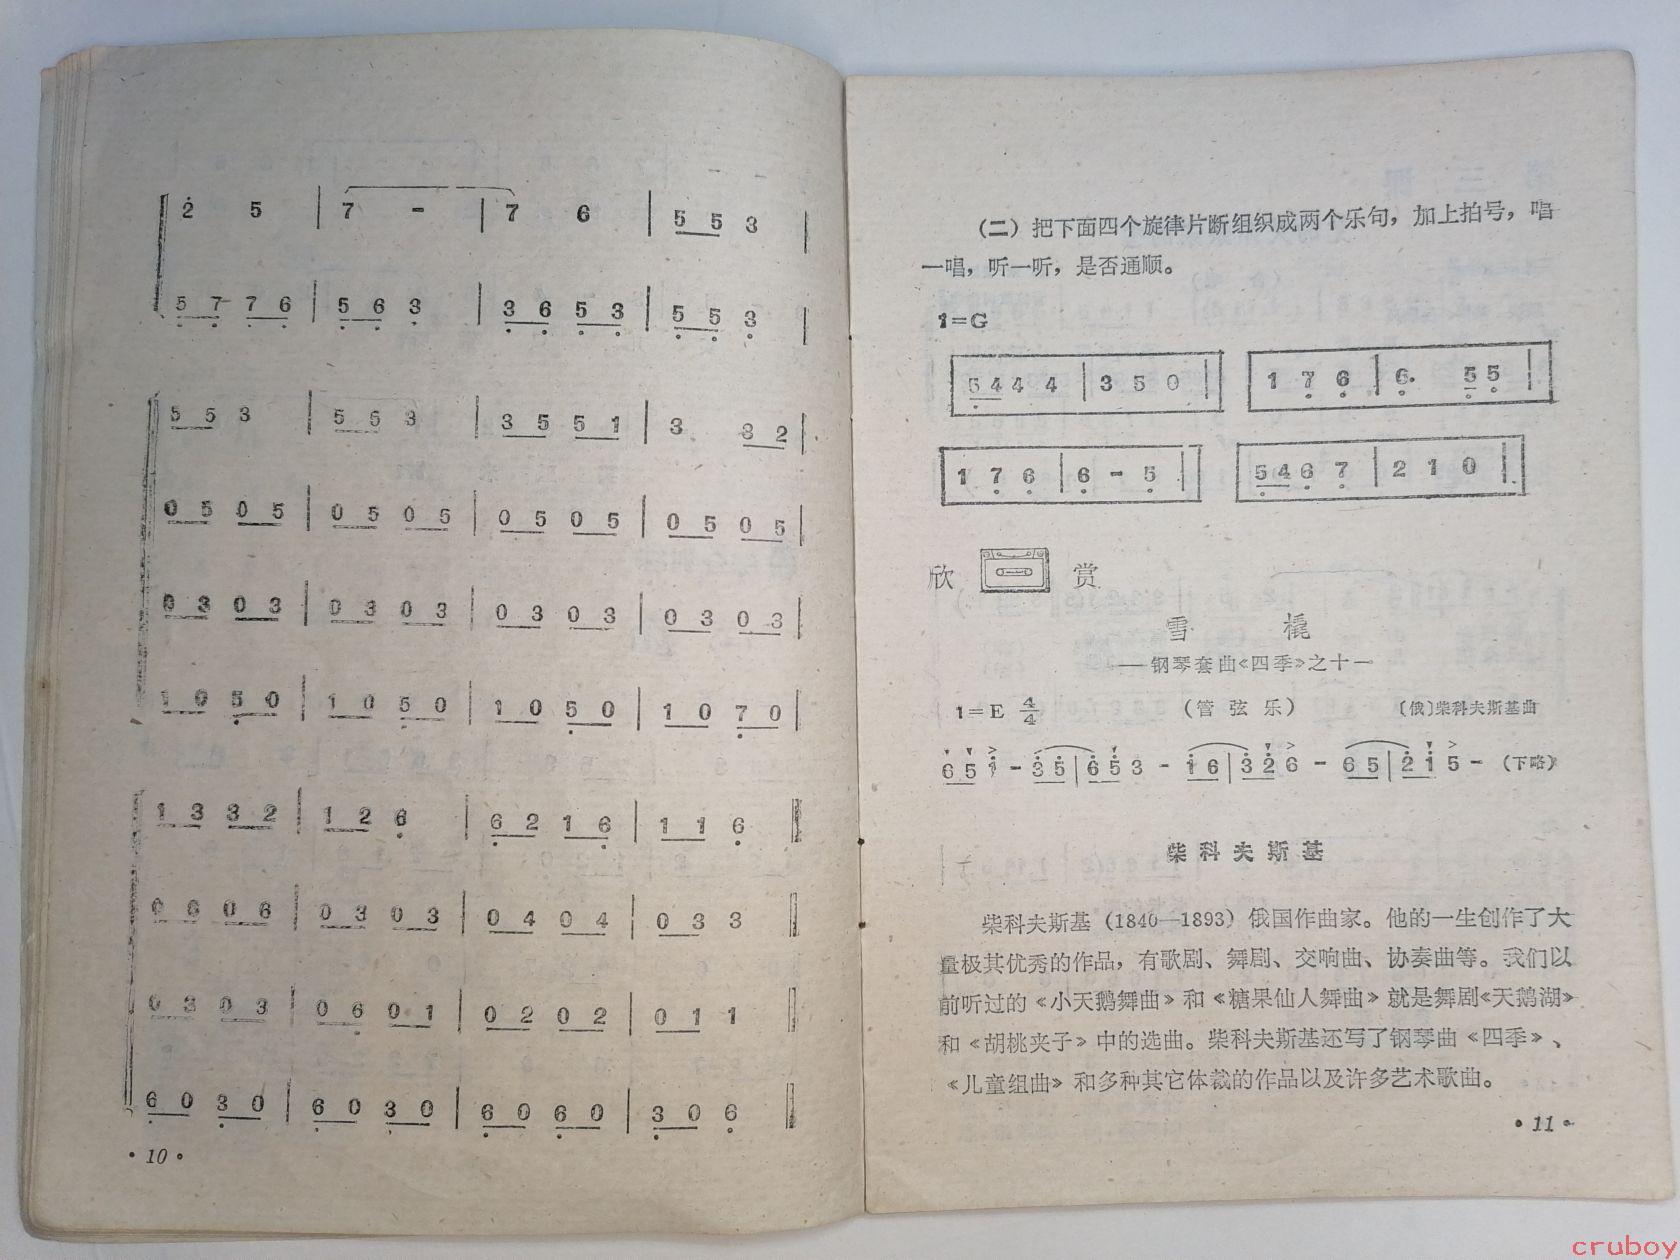 2̇ 5 | 7 - | 7 6 | 5 5 3 |
5̣ 7̣ 7̣ 6̣ | 5̣ 6̣ 3̣ | 3̣ 6̣ 5̣ 3̣ | 5̣ 5̣ 3̣ |
5 5 3 | 5 5 3 | 3 5 5 1 | 3 3 2 |
0 5 0 5 | 0 5 0 5 | 0 5 0 5 | 0 5 0 5 |
0 3 0 3 | 0 3 0 3 | 0 3 0 3 | 0 3 0 3 |
1 0 5̣ 0 | 1 0 5̣ 0 | 1 0 5̣ 0 | 1 0 7̣ 0 |
1 3 3 2 | 1 2 6̣ | 6̣ 2 1 6̣ | 1 1 6̣ ‖
0 6 0 6 | 0 3 0 3 | 0 4 0 4 | 0 3 3 ‖
0 3 0 3 | 0 6̣ 0 1 | 0 2 0 2 | 0 1 1 ‖
6̣ 0 3̣ 0 | 6̣ 0 3̣ 0 | 6̣ 0 6̣ 0 | 3̣ 0 6̣ ‖
·10·
(二)把下面四个旋律片断组织成两个乐句，加上拍号，唱
一唱，听一听，是否通顺。
1=G
5 4 4 4 | 3 5 0 | 1 7̣ 6̣ | 6̣. 5̣ 5̣ |
1 7̣ 6̣ | 6̣ - 5̣ | 5̣ 4̣ 6̣ 7̣ | 2 1 0 |
欣 赏
雪 橇
——钢琴套曲《四季》之十一
1=E 4/4 (管弦乐) 〔俄〕柴科夫斯基曲
6 5 1̇ - 3̇ 5̇ | 6̇ 5̇ 3 - 1̇ 6 | 3̇ 2̇ 6 - 6 5 | 2̇ 1̇ 5 - (下略)
柴科夫斯基
柴科夫斯基(1840—1893)俄国作曲家。他的一生创作了大
量极其优秀的作品，有歌剧、舞剧、交响曲、协奏曲等。我们以
前听过的《小天鹅舞曲》和《糖果仙人舞曲》就是舞剧《天鹅湖》
和《胡桃夹子》中的选曲。柴科夫斯基还写了钢琴曲《四季》、
《儿童组曲》和多种其它体裁的作品以及许多艺术歌曲。
·11·
cruboy